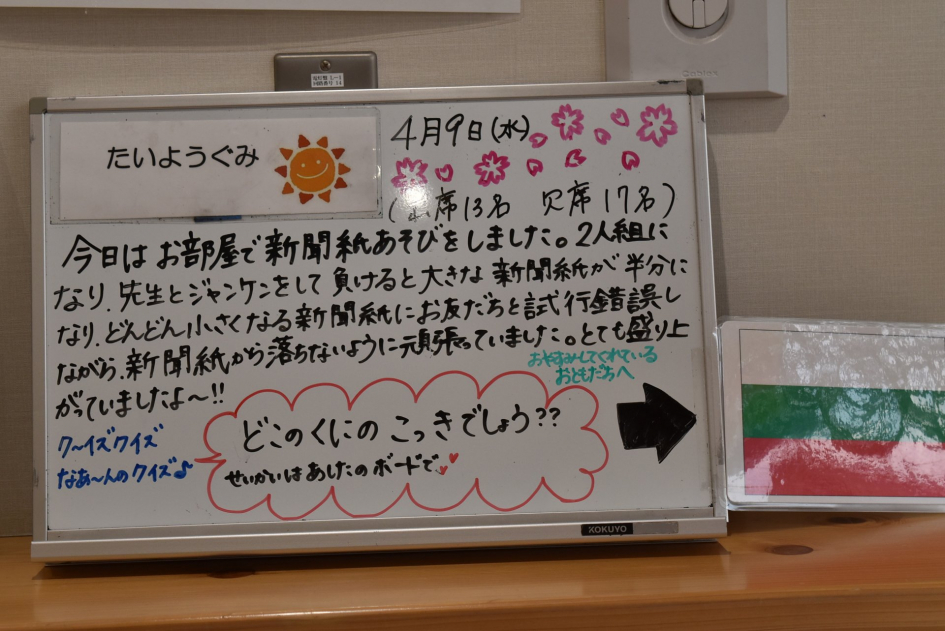 たいようぐみ
4月9日(水)
席13名 欠席17名)
今日はお部屋で新聞紙あそびをしました。2人組に
なり、先生とジャンケンをして負けると大きな新聞紙が半分に
なり、どんどん小さくなる新聞紙にお友だちと試行錯誤し
ながら、新聞紙から落ちないように頑張っていました。とても盛り上
がっていましたよ〜!!
おやすみしてくれている
おともだちへ
ク〜イズクイズ
なあ〜んのクイズ♪
どこのくにの こっきでしょう??
せいかいはあしたのボードで
KOKUYO